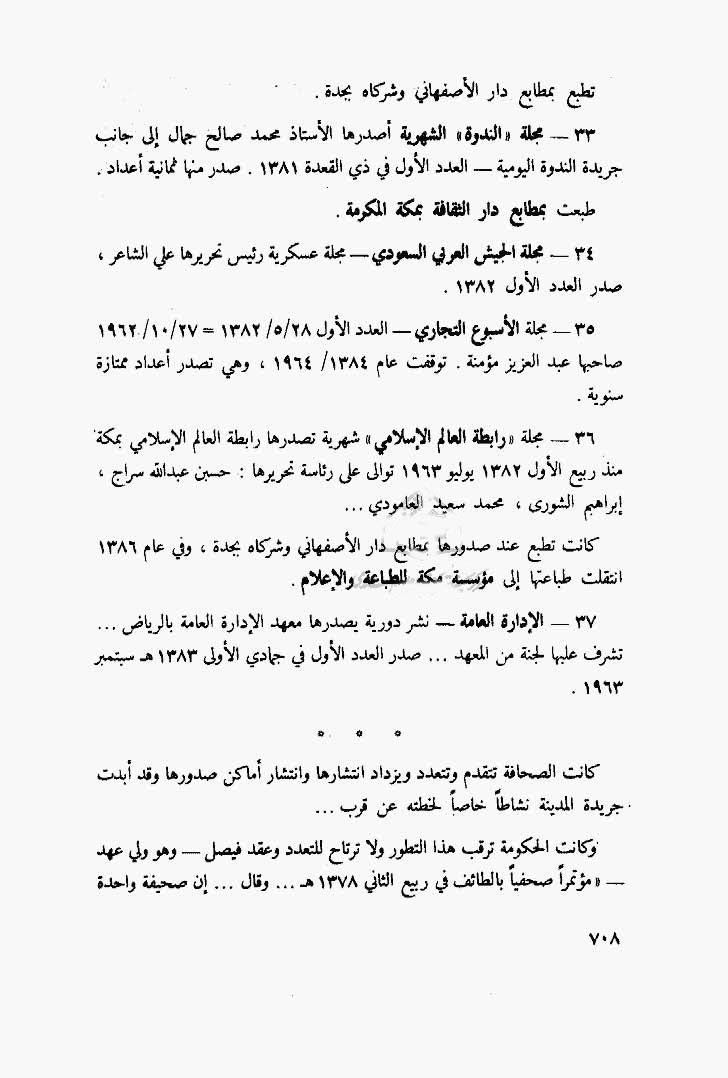 تطبع بمطابع دار الأصفهاني وشركاه بجدة .
٣٣ — مجلة «الندوة» الشهرية أصدرها الأستاذ محمد صالح جمال إلى جانب
جريدة الندوة اليومية — العدد الأول في ذي القعدة ١٣٨١ . صدر منها ثمانية أعداد .
طبعت بمطابع دار الثقافة بمكة المكرمة .
٣٤ — مجلة الجيش العربي السعودي — مجلة عسكرية رئيس تحريرها علي الشاعر ،
صدر العدد الأول ١٣٨٢ .
٣٥ — مجلة الأسبوع التجاري — العدد الأول ٢٨/٥/ ١٣٨٢ = ٢٧/ ١٠/ ١٩٦٢
صاحبها عبد العزيز مؤمنة . توقفت عام ١٣٨٤/ ١٩٦٤ ، وهي تصدر أعداد ممتازة
سنوية .
٣٦ — مجلة «رابطة العالم الإسلامي» شهرية تصدرها رابطة العالم الإسلامي بمكة
منذ ربيع الأول ١٣٨٢ يوليو ١٩٦٣ توالى على رئاسة تحريرها : حسين عبدالله سراج ،
إبراهيم الشورى ، محمد سعيد العامودي ...
كانت تطبع عند صدورها بمطابع دار الأصفهاني وشركاه بجدة ، وفي عام ١٣٨٦
انتقلت طباعتها إلى مؤسسة مكة للطباعة والإعلام .
٣٧ — الإدارة العامة — نشر دورية يصدرها معهد الإدارة العامة بالرياض ...
تشرف عليها لجنة من المعهد ... صدر العدد الأول في جمادي الأولى ١٣٨٣ هـ سبتمبر
١٩٦٣ .
* * *
كانت الصحافة تتقدم وتتعدد ويزداد انتشارها وانتشار أماكن صدورها وقد أبدت
جريدة المدينة نشاطاً خاصاً لخطته عن قرب ...
وكانت الحكومة ترقب هذا التطور ولا ترتاح للتعدد وعقد فيصل — وهو ولي عهد
— «مؤتمراً صحفياً بالطائف في ربيع الثاني ١٣٧٨ هـ ... وقال ... إن صحيفة واحدة
٧٠٨